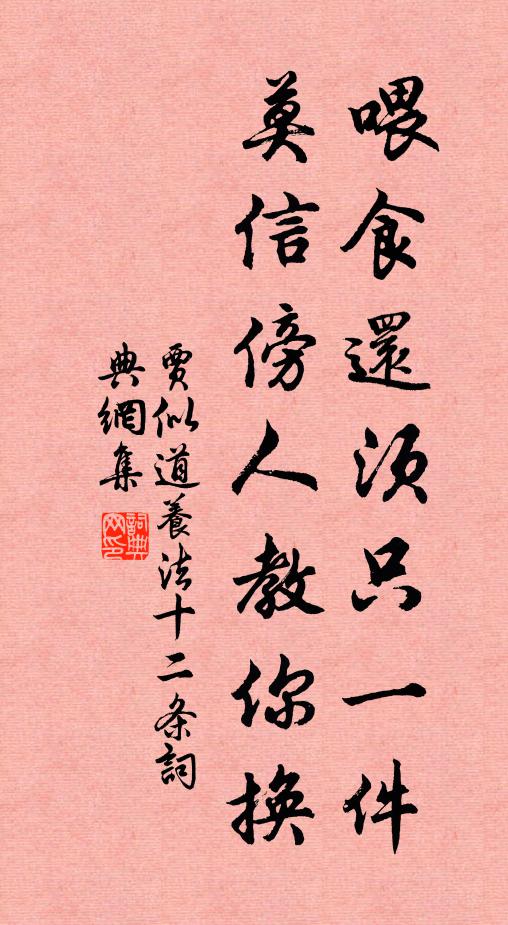 喂食還須只一件
莫信傍人教你換
賈似道養法十二条詞
典網集
詞典网印